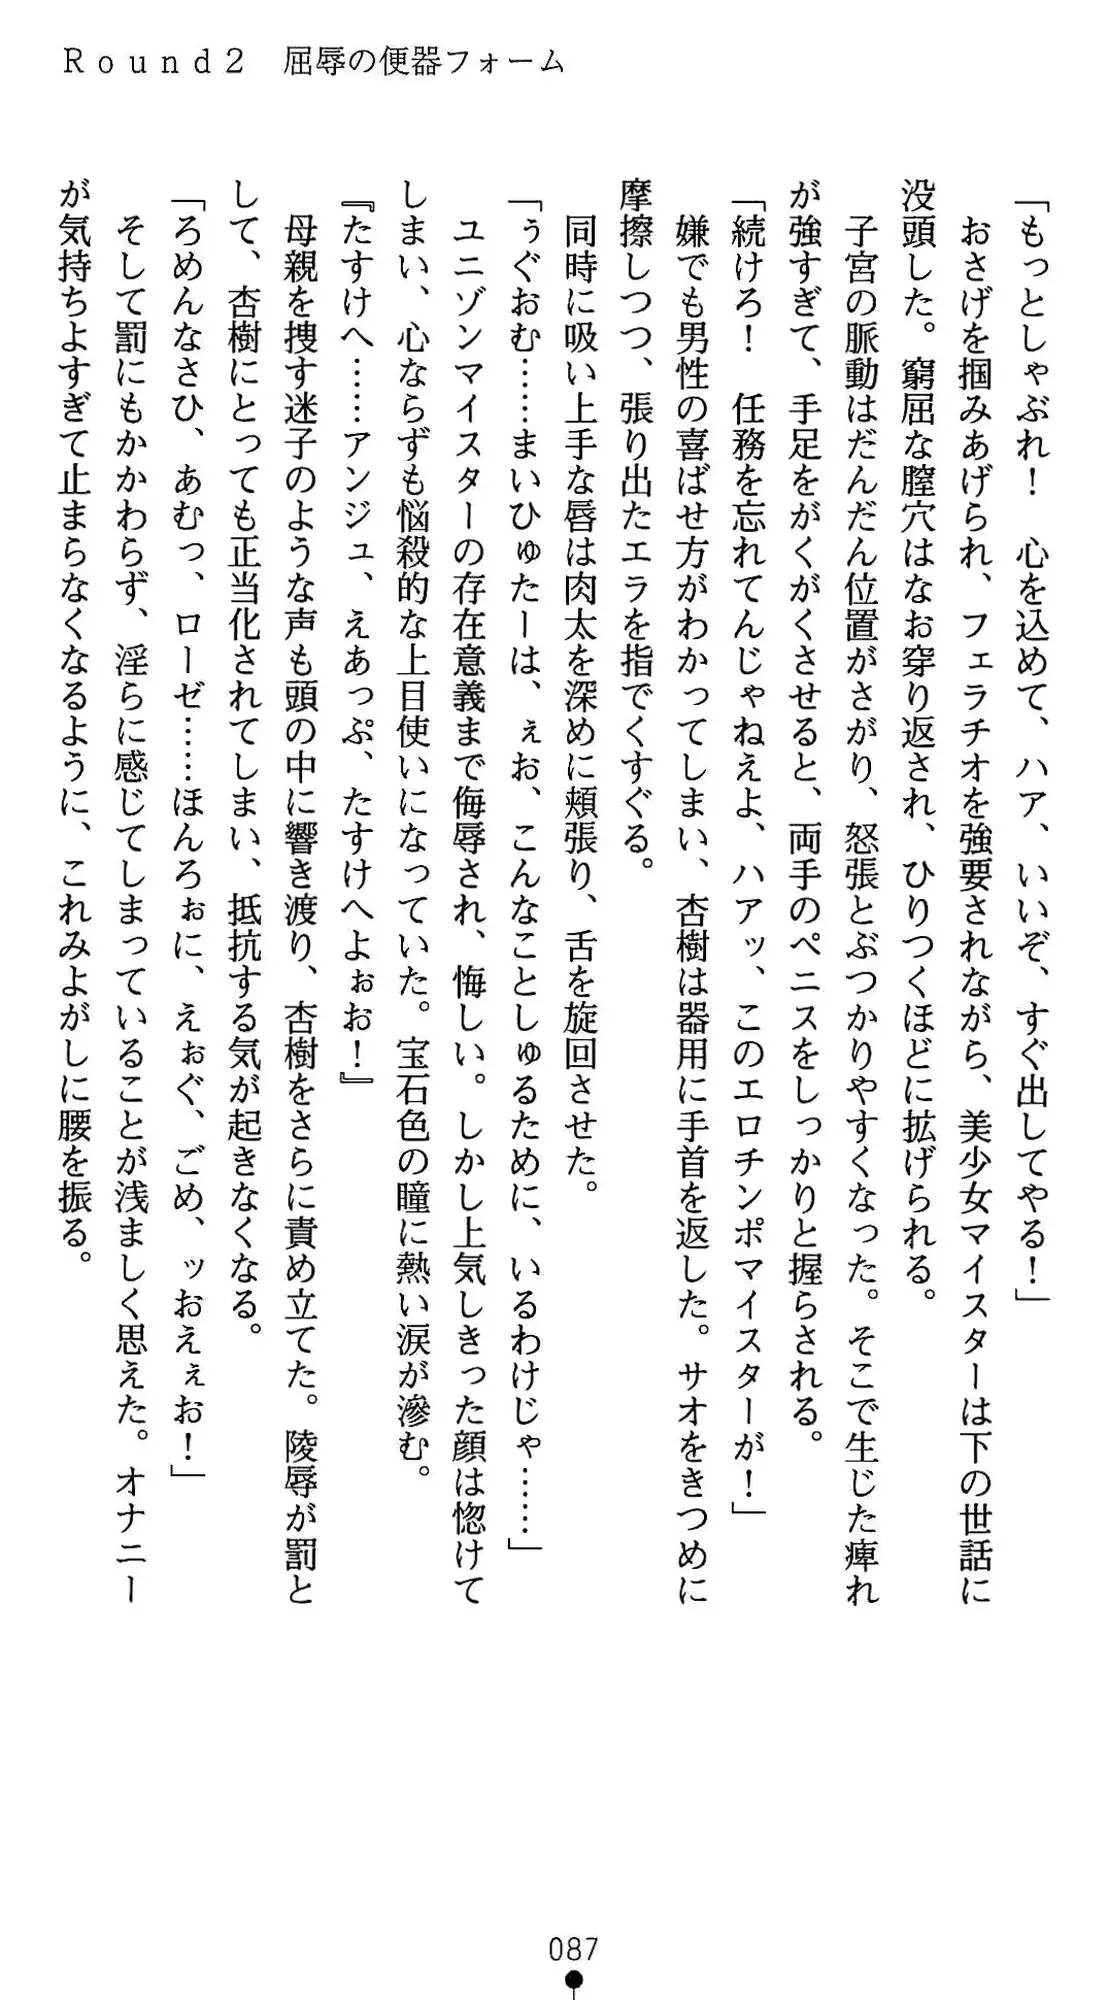 Round2　屈辱の便器フォーム
「もっとしゃぶれ！　心を込めて、ハア、いいぞ、すぐ出してやる！」
　おさげを掴みあげられ、フェラチオを強要されながら、美少女マイスターは下の世話に
没頭した。窮屈な膣穴はなお穿り返され、ひりつくほどに拡げられる。
　子宮の脈動はだんだん位置がさがり、怒張とぶつかりやすくなった。そこで生じた痺れ
が強すぎて、手足をがくがくさせると、両手のペニスをしっかりと握らされる。
「続けろ！　任務を忘れてんじゃねえよ、ハアッ、このエロチンポマイスターが！」
　嫌でも男性の喜ばせ方がわかってしまい、杏樹は器用に手首を返した。サオをきつめに
摩擦しつつ、張り出たエラを指でくすぐる。
　同時に吸い上手な唇は肉太を深めに頬張り、舌を旋回させた。
「ぅぐおむ……まいひゅたーは、ぇお、こんなことしゅるために、いるわけじゃ……」
　ユニゾンマイスターの存在意義まで侮辱され、悔しい。しかし上気しきった顔は惚けて
しまい、心ならずも悩殺的な上目使いになっていた。宝石色の瞳に熱い涙が滲む。
『たすけへ……アンジュ、えあっぷ、たすけへよぉお！』
　母親を捜す迷子のような声も頭の中に響き渡り、杏樹をさらに責め立てた。陵辱が罰と
して、杏樹にとっても正当化されてしまい、抵抗する気が起きなくなる。
「ろめんなさひ、あむっ、ローゼ……ほんろぉに、えぉぐ、ごめ、ッおえぇお！」
　そして罰にもかかわらず、淫らに感じてしまっていることが浅ましく思えた。オナニー
が気持ちよすぎて止まらなくなるように、これみよがしに腰を振る。
087